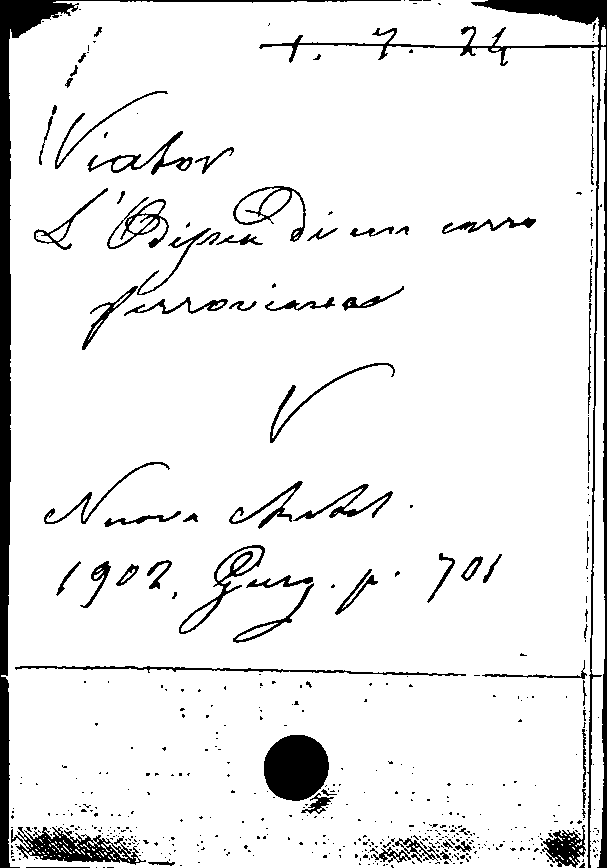 1. 7. 24
Viator
L'Odissea di un carro
ferroviario
V
Nuova Antol.
1902, Giug. p. 701